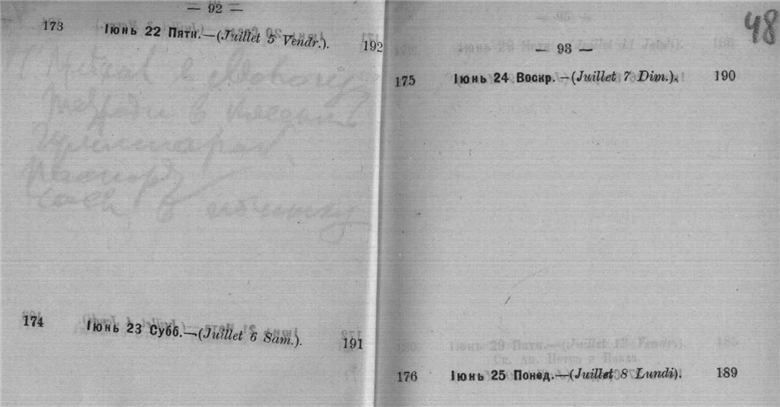 — 92 —
173 Іюнь 22 Пятн.—(Juillet 5 Vendr.). 192
тетради в
паспорт
часы в починку
174 Іюнь 23 Субб.—(Juillet 6 Sam.). 191
48
— 93 —
175 Іюнь 24 Воскр.—(Juillet 7 Dim.). 190
176 Іюнь 25 Понед.—(Juillet 8 Lundi). 189